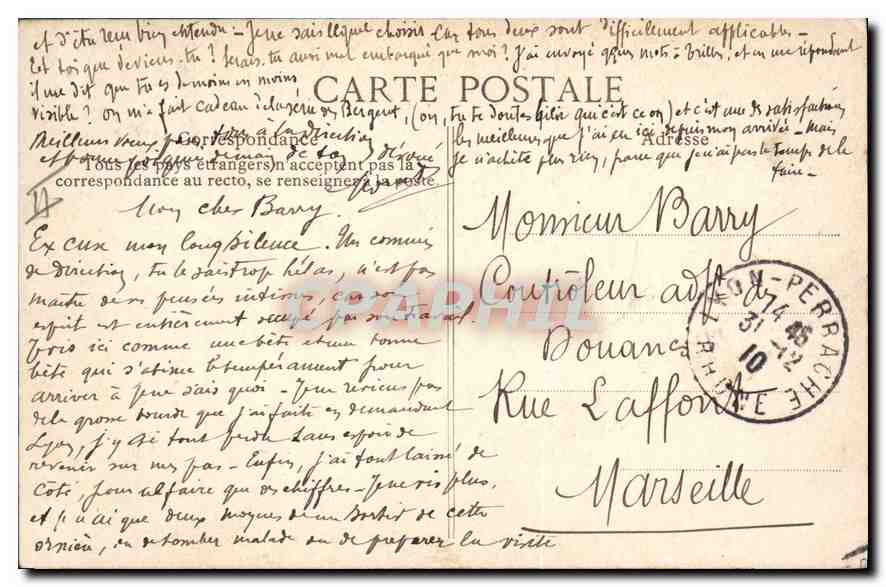 Mon cher Barry.
Excuse mon long silence. Un commis
de direction, tu le sais trop hélas, n'est pas
maître de ses pensées intimes, car son
esprit est entièrement occupé par son travail.
Je vis ici comme une bête et une bonne
bête qui s'abîme le tempérament pour
arriver à je ne sais quoi - Je ne reviens pas
de la grosse bourde que j'ai faite en demandant
Lyon, j'y ai tout perdu sans espoir de
revenir sur mes pas - Enfin, j'ai tout laissé de
côté, pour ne faire que des chiffres - Je ne vis plus,
et je n'ai que deux moyens de sortir de cette
ornière, en tomber malade ou de préparer la visite
et d'être reçu bien entendu - Je ne sais lequel choisir car tous deux sont difficilement applicables -
Et toi que deviens-tu ? Serais-tu aussi mal embarqué que moi ? J'ai envoyé qques mots à Brilles, et en me répondant
il me dit que tu es de moins en moins
visible ? On m'a fait cadeau de la série des Bergeret, (on, tu te doutes bien qui c'est ce on) et c'est une des satisfactions
les meilleures que j'ai eu ici depuis mon arrivée - Mais
je n'achète plus rien, parce que je n'ai pas le temps de le
faire -
Meilleurs vœux pour tous à la direction
et bonne poignée de main de ton dévoué
CARTE POSTALE
Correspondance
Tous les pays étrangers n'acceptent pas la
correspondance au recto, se renseigner à la poste
Adresse
Monsieur Barry
Contrôleur adjt des
Douanes
Rue Laffont
Marseille
LYON-PERRACHE
14 45
31 -12
10
RHONE
CPARHIL